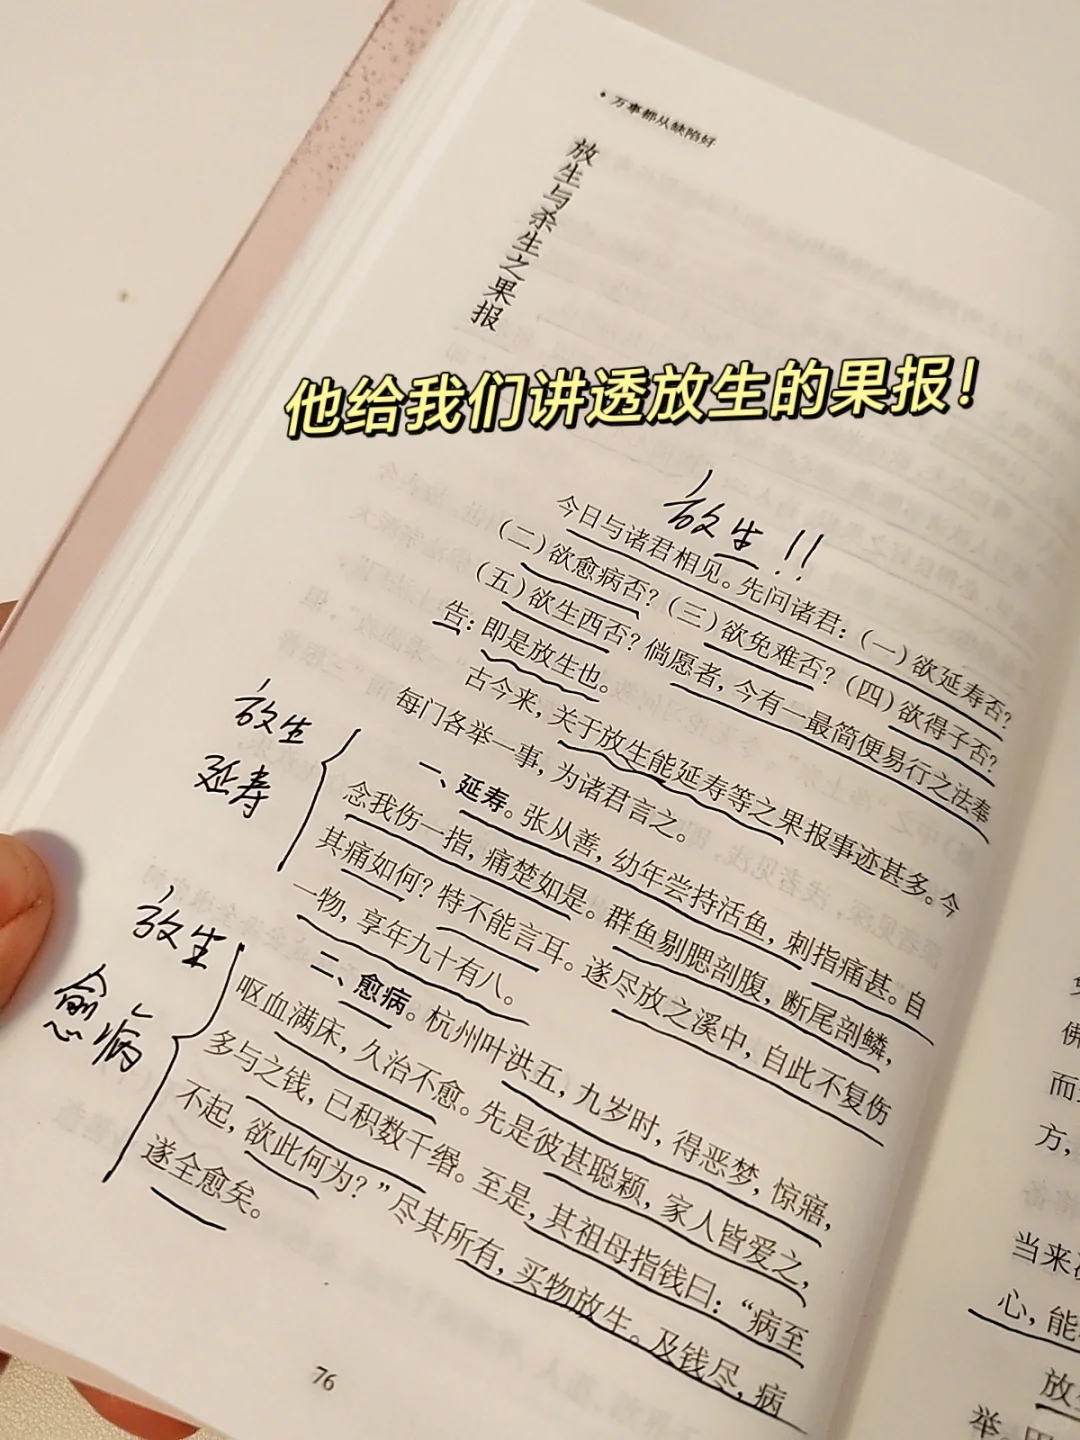 万事都从缺陷好
放生与杀生之果报
他给我们讲透放生的果报！
放生！！
今日与诸君相见。先问诸君：（一）欲延寿否？
（二）欲愈病否？（三）欲免难否？（四）欲得子否？
（五）欲生西否？倘愿者，今有一最简便易行之法奉
告：即是放生也。
古今来，关于放生能延寿等之果报事迹甚多。今
每门各举一事，为诸君言之。
放生
延寿
一、延寿。张从善，幼年尝持活鱼，刺指痛甚。自
念我伤一指，痛楚如是。群鱼剔腮剖腹，断尾剖鳞，
其痛如何？特不能言耳。遂尽放之溪中，自此不复伤
一物，享年九十有八。
放生
愈病
二、愈病。杭州叶洪五，九岁时，得恶梦，惊寤，
呕血满床，久治不愈。先是彼甚聪颖，家人皆爱之，
多与之钱，已积数千缗。至是，其祖母指钱曰：“病至
不起，欲此何为？”尽其所有，买物放生。及钱尽，病
遂全愈矣。
76
佛
而
方，
当来
心，能
放
举。